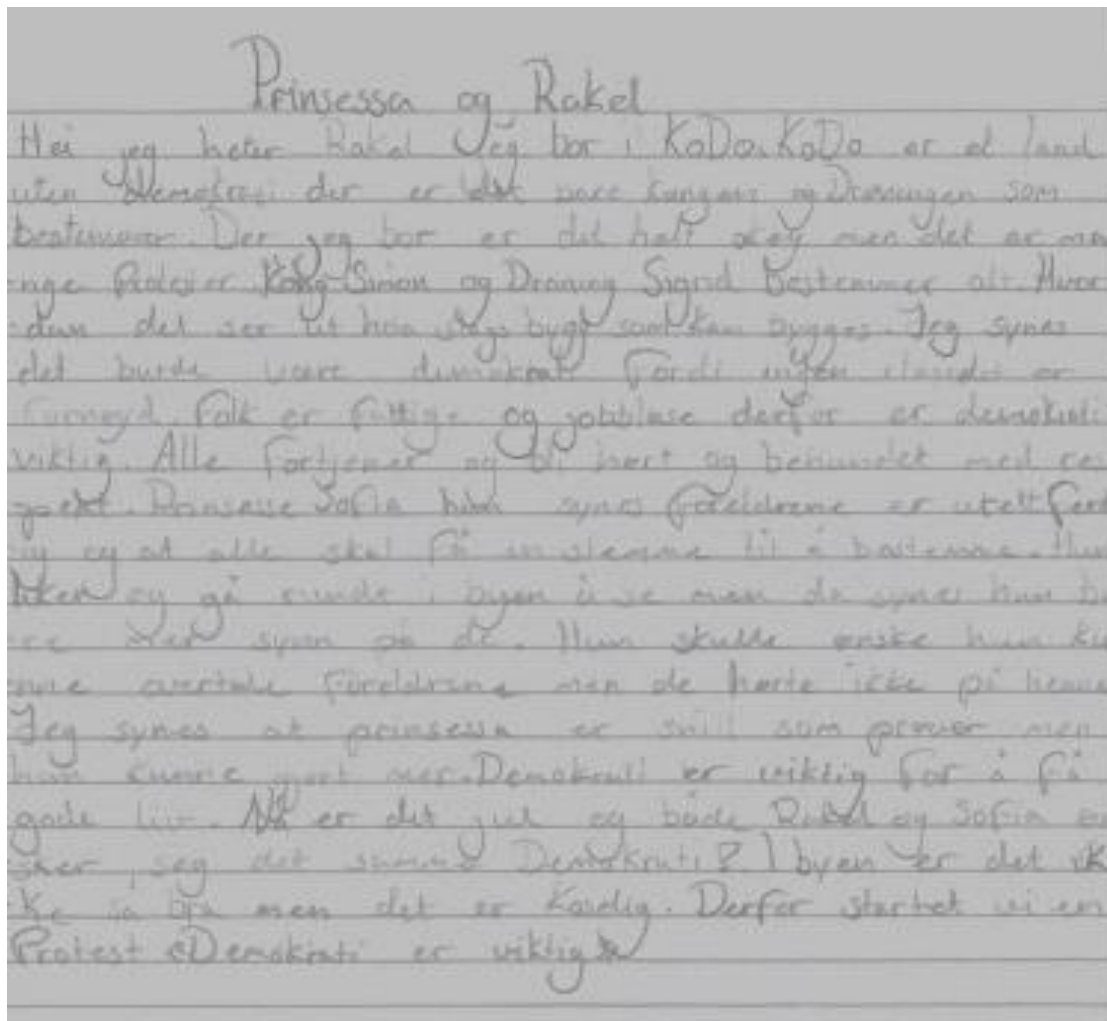 Prinsessa og Rakel
Hei jeg heter Rakel Jeg bor i KoDo. KoDo er et land
uten demokrati der er det bare kongen og Droningen som
bestemmer. Der jeg bor er det helt okey men det er ma
nge Protester Kong Simon og Droning Sigrid Bestemmer alt. Hvor
dan det ser ut hva slags bygg som kan bygges. Jeg synes
det burde være demokrati Fordi ingen er
Fornøyd. Folk er fattige og jobbløse derfor er demokrati
viktig. Alle fortjener og bli hørt og behandlet med res
pekt. Prinsesse Sofia hun synes Foreldrene er urettferd
ig og at alle skal få en stemme til å bestemme. Hun
liker og gå runde i byen å se men da synes hun ba
re mer synn på de. Hun skulle ønske hun ku
nne overtale Foreldrene men de hørte ikke på henne
Jeg synes at prinsessa er snill som prøver men
hun kunne gjort mer. Demokrati er viktig For å Få
gode liv. Nå er det jul og både Rakel og Sofia øn
sker seg det samme Demokrati? I byen er det ik
ke så bra men det er Koselig. Derfor startet vi en
Protest Demokrati er viktig